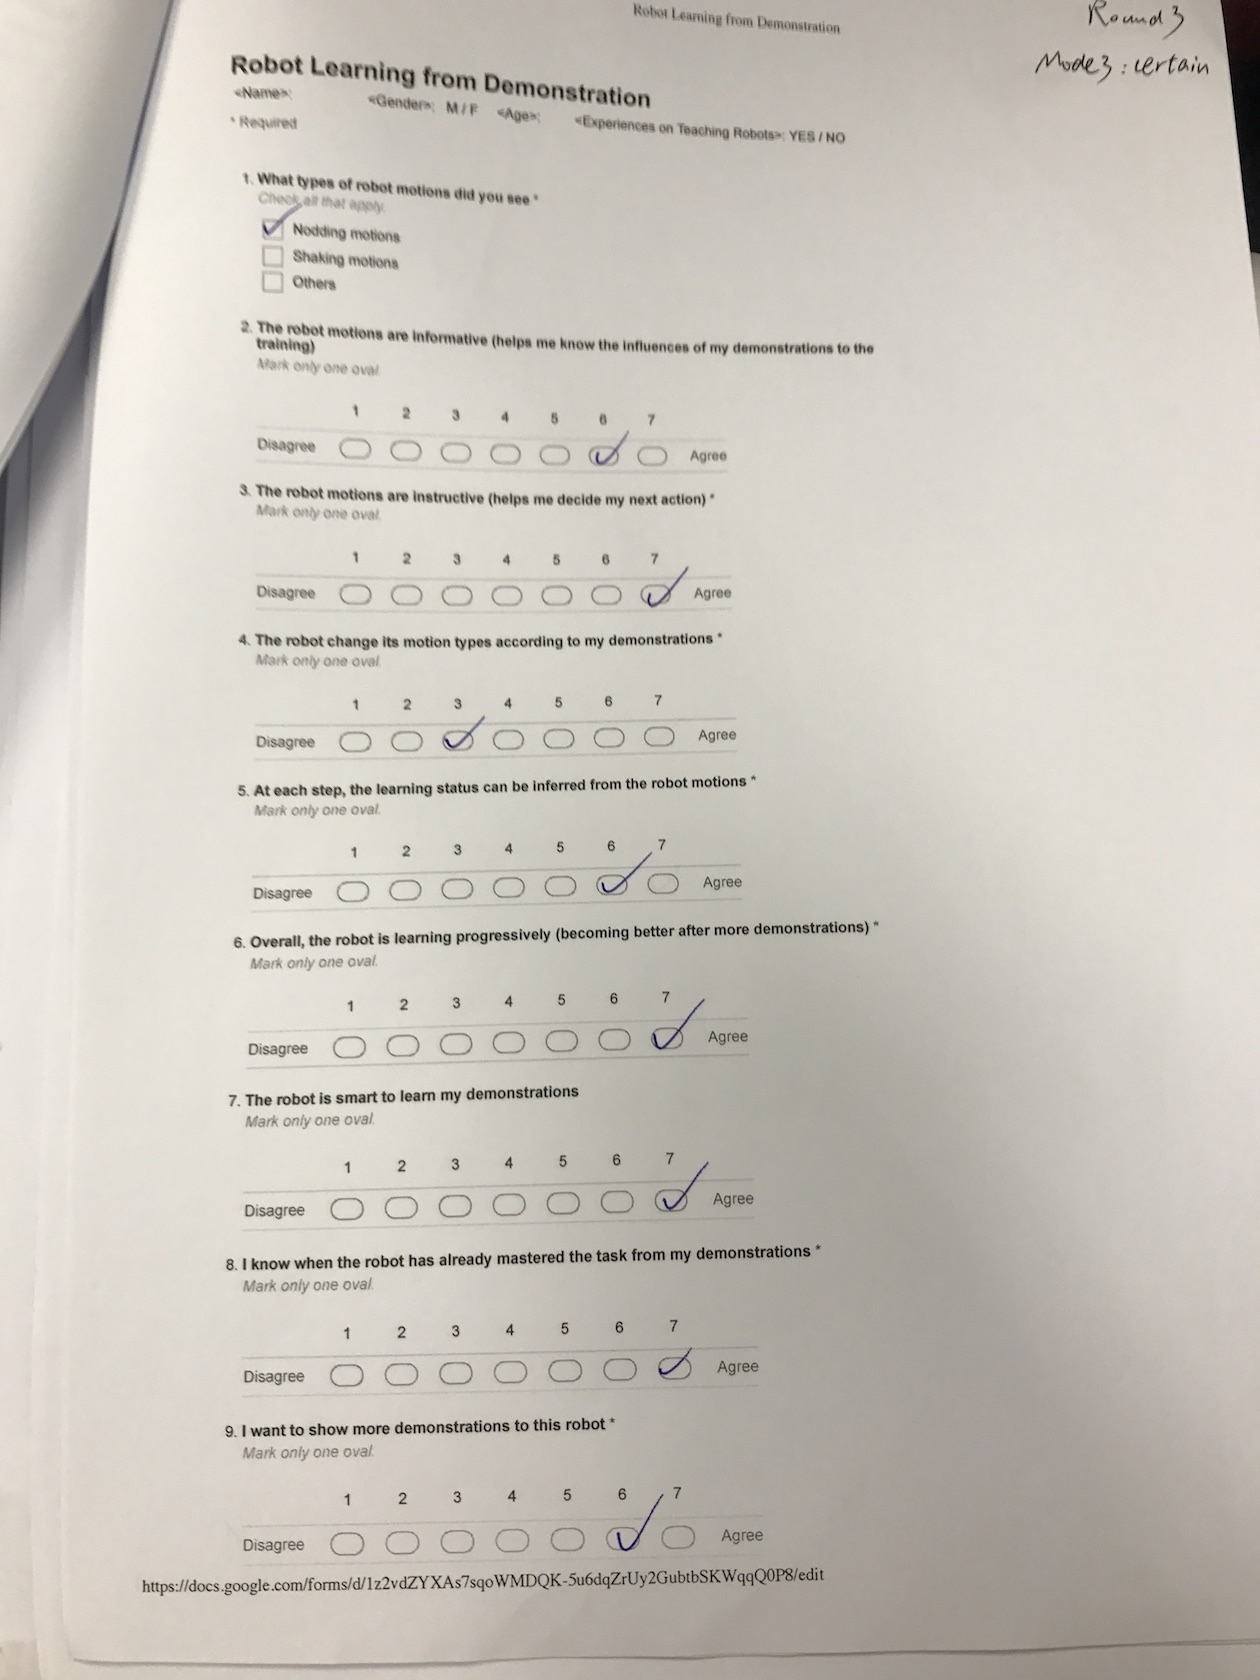 Robot Learning from Demonstration
Round 3
Mode3 : certain
Robot Learning from Demonstration
<Name>: <Gender>: M / F <Age>: <Experiences on Teaching Robots>: YES / NO
* Required
1. What types of robot motions did you see *
Check all that apply.
Nodding motions
Shaking motions
Others
2. The robot motions are informative (helps me know the influences of my demonstrations to the
training)
Mark only one oval.
1 2 3 4 5 6 7
Disagree Agree
3. The robot motions are instructive (helps me decide my next action) *
Mark only one oval.
1 2 3 4 5 6 7
Disagree Agree
4. The robot change its motion types according to my demonstrations *
Mark only one oval.
1 2 3 4 5 6 7
Disagree Agree
5. At each step, the learning status can be inferred from the robot motions *
Mark only one oval.
1 2 3 4 5 6 7
Disagree Agree
6. Overall, the robot is learning progressively (becoming better after more demonstrations) *
Mark only one oval.
1 2 3 4 5 6 7
Disagree Agree
7. The robot is smart to learn my demonstrations
Mark only one oval.
1 2 3 4 5 6 7
Disagree Agree
8. I know when the robot has already mastered the task from my demonstrations *
Mark only one oval.
1 2 3 4 5 6 7
Disagree Agree
9. I want to show more demonstrations to this robot *
Mark only one oval.
1 2 3 4 5 6 7
Disagree Agree
https://docs.google.com/forms/d/1z2vdZYXAs7sqoWMDQK-5u6dqZrUy2GubtbSKWqqQ0P8/edit